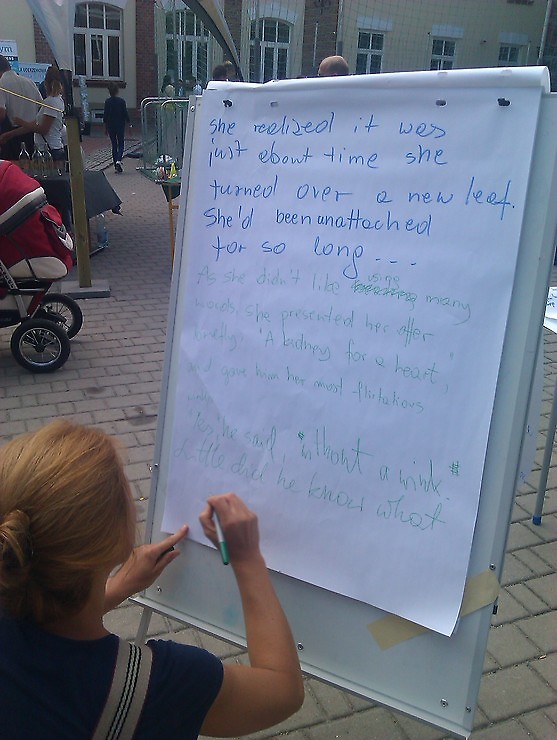 she realised it was
just about time she
turned over a new leaf.
She'd been unattached
for so long ...
As she didn't like using many
words, she presented her offer
briefly: "A kidney for a heart",
and gave him her most flirtatious
"Yes", he said, "without a wink."
Little did he know what
ym